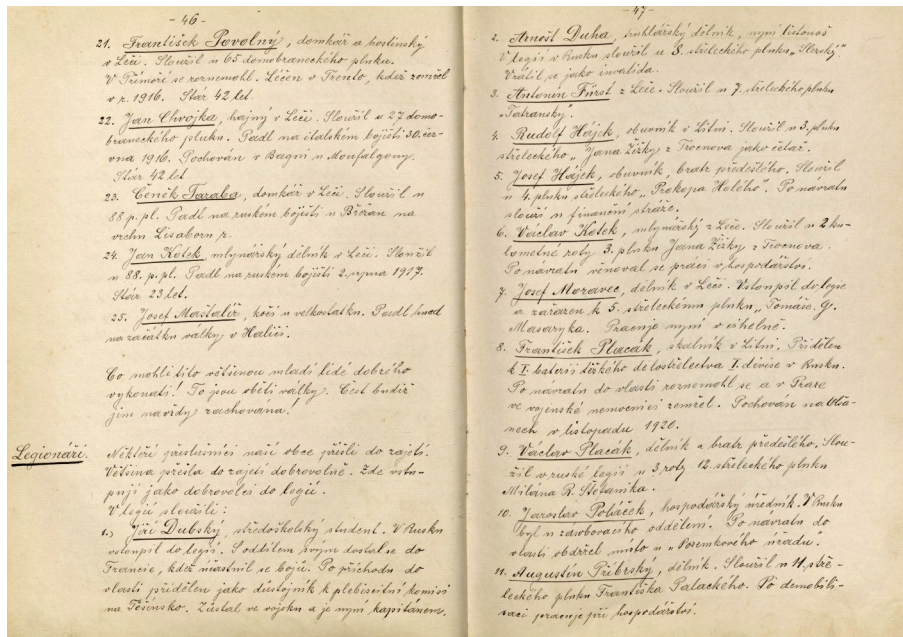 - 46 -
21. František Povolný, domkář a hostinský
v Léči. Sloužil u 65 domobraneckého pluku.
V Přímoří se roznemohl. Léčen v Trento, kdež zemřel
v r. 1916. Stár 42 let.
22. Jan Chvojka, hajný v Léči. Sloužil u 27 domo-
braneckého pluku. Padl na italském bojišti 30. čer-
vna 1916. Pochován v Bagni u Monfalgony.
Stár 42 let
23. Čeněk Taraba, domkář v Léči. Sloužil u
88 p. pl. Padl na ruském bojišti u Břežan na
vrchu Lisaborn r.
24. Jan Kotek, mlynářský dělník v Léči. Sloužil
u 88. p. pl. Padl na ruském bojišti 2. srpna 1917.
Stár 23 let.
25. Josef Maštalíř, kočí u velkostatku. Padl hned
na začátku války v Haliči.
Co mohli tito většinou mladí lidé dobrého
vykonati! To jsou oběti války. Čest budiž
jim navždy zachována!
Legionáři.
Někteří příslušníci naší obce přišli do zajetí.
Většina přešla do zajetí dobrovolně. Zde vstu-
pují jako dobrovolci do legií.
V legii sloužili:
1.) Jiří Dubský, středoškolský student. V Rusku
vstoupil do legií. S oddílem svým dostal se do
Francie, kdež účastnil se bojů. Po příchodu do
vlasti přidělen jako důstojník k plebiscitní komisi
na Těšínsko. Zůstal ve vojsku a je nyní kapitánem.
- 47 -
2. Arnošt Duha, truhlářský dělník, nyní listonoš
V legii v Rusku sloužil u 8. střeleckého pluku „Slezský"
Vrátil se jako invalida.
3. Antonín Fürst z Léče. Sloužil u 7. střeleckého pluku
„Tatranský".
4. Rudolf Hájek, obuvník v Litni. Sloužil u 3. pluku
střeleckého „Jana Žižky z Trocnova jako četař.
5. Josef Hájek, obuvník, bratr předešlého. Sloužil
u 4. pluku střeleckého „Prokopa Holého". Po návratu
slouží u finanční stráže.
6. Václav Kotek, mlynářský z Léče. Sloužil u 2 ku-
lometné roty 3. pluku Jana Žižky z Trocnova.
Po návratu věnoval se práci v hospodářství.
7. Josef Moravec, dělník v Léči. Vstoupil do legie
a zařazen k 5. střeleckému pluku „Tomáše G.
Masaryka. Pracuje nyní v cihelně.
8. František Placák, skalník v Litni. Přidělen
k I. baterii těžkého dělostřelectva I. divise v Rusku.
Po návratu do vlasti roznemohl se a v Praze
ve vojenské nemocnici zemřel. Pochován na Olša-
nech v listopadu 1920.
9. Václav Placák, dělník a bratr předešlého. Slou-
žil v ruské legii u 3 roty 12. střeleckého pluku
Milána R. Štefanika.
10. Jaroslav Poláček, hospodářský úředník. V Rusku
byl u zásobovacího oddělení. Po návratu do
vlasti obdržel místo u „Pozemkového úřadu".
11. Augustin Příbrský, dělník. Sloužil u 11. stře-
leckého pluku Františka Palackého. Po demobili-
saci pracuje při hospodářství.